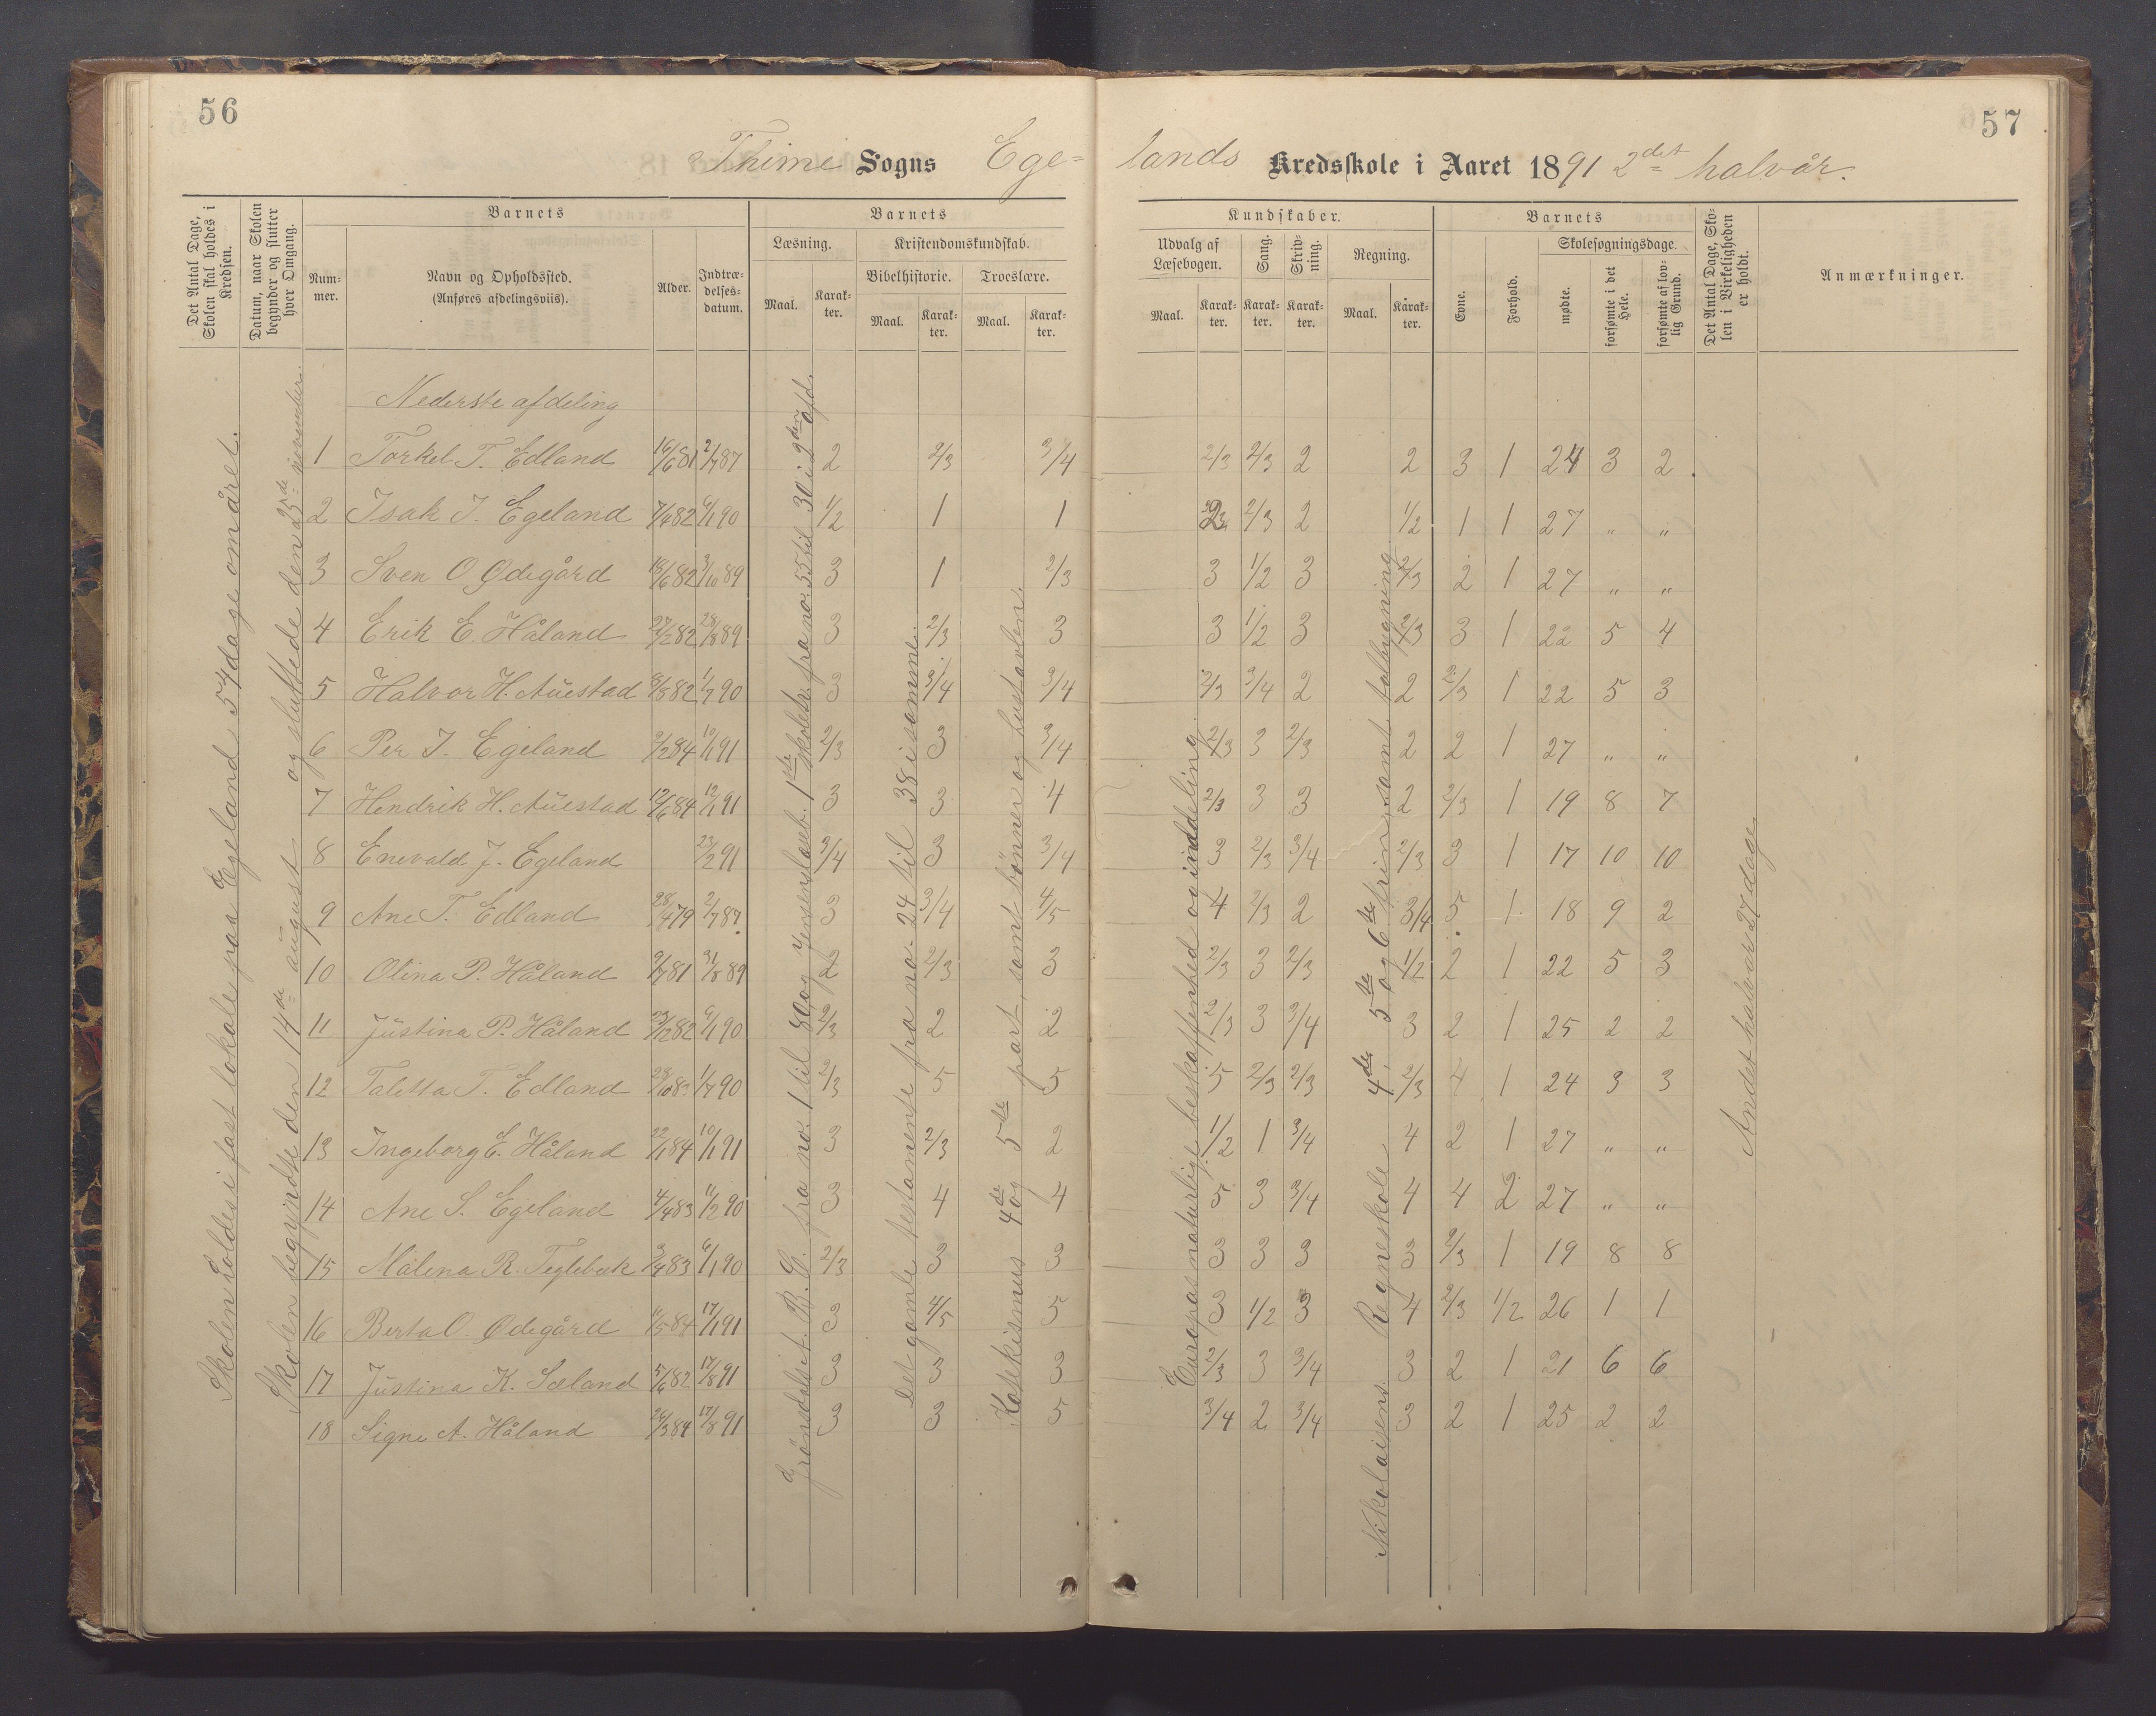 56
57
Thime Sogns Ege=
lands Kredsskole i Aaret 1891 2det halvår.
Det Antal Dage, Skolen skal holdes i Kredsen.
Datum, naar Skolen begynder og slutter hver Omgang.
Barnets
Nummer.
Navn og Opholdssted.
(Anføres afdelingsviis).
Alder.
Indtrædelsesdatum.
Barnets
Læsning.
Maal.
Karakter.
Kristendomskundskab.
Bibelhistorie.
Maal.
Karakter.
Troeslære.
Maal.
Karakter.
Kundskaber.
Udvalg af Læsebogen.
Maal.
Karakter.
Sang.
Karakter.
Skrivning.
Karakter.
Regning.
Maal.
Karakter.
Barnets
Evne.
Forhold.
Skolesøgningsdage.
mødte.
forsømte i det Hele.
forsømte af lovlig Grund.
Det Antal Dage, Skolen i Virkeligheden er holdt.
Anmærkninger.
Skolen holdes i fast lokale paa Egeland 54 dage om året.
Skolen begyndte den 14de august og sluttede den 25de november.
fra no. 1 til 80 og Jensens læseb. 1ste skoletr. fra no. 55 til 30 i 2den afd.
Det gamle testamente fra no. 24 til 38 i samme.
Katekismus 4de og 5te part, samt bönner og hustavlen.
Europas naturlige beskaffenhed og inddeling
Nikolaisens Regneskole 4de, 5te og 6te trin, samt talbygning
Andet halvår 27 dage
Nederste afdeling
1 Torkel T. Edland 16/6 81 2/7 87 2 2/3 3/4 2/3 2/3 2 2 3 1 24 3 2
2 Isak J. Egeland 7/4 82 6/1 90 1/2 1 1 2/3 2 1/2 1 1 27 " "
3 Sven O Ødegård 18/6 82 3/10 89 3 1 2/3 3 1/2 3 2/3 2 1 27 " "
4 Erik E. Håland 27/2 82 28/8 89 3 2/3 3 3 1/2 3 2/3 3 1 22 5 4
5 Halvor H. Auestad 8/8 82 1/7 90 3 3/4 3/4 2/3 3/4 2 2 2/3 1 22 5 3
6 Per J. Egeland 9/2 84 10/1 91 2/3 3 3/4 2/3 3 2/3 2 2 1 27 " "
7 Hendrik H. Auestad 12/6 84 12/1 91 3 3 4 2/3 3 3 2 2/3 1 19 8 7
8 Enevald J. Egeland 23/2 91 3/4 3 3/4 3 2/3 3/4 2/3 3 1 17 10 10
9 Ane T. Edland 28/4 79 2/7 87 3 3/4 4/5 4 2/3 2 3/4 5 1 18 9 2
10 Olina P. Håland 9/7 81 31/8 89 2 2/3 3 2/3 3 2/3 1/2 2 1 22 5 3
11 Justina P. Håland 23/12 82 6/1 90 2/3 2 2 2/3 3 3/4 3 2 1 25 2 2
12 Taletta T. Edland 28/10 8 1/7 90 2/3 5 5 5 2/3 2/3 2/3 4 1 24 3 3
13 Ingeborg E. Håland 22/1 84 10/1 91 3 2/3 2 1/2 1 3/4 4 2 1 27 " "
14 Ane S. Egeland 4/4 83 11/2 90 3 4 4 5 3 3/4 4 4 2 27 " "
15 Målena R. Teglebæk 3/7 83 6/1 90 2/3 3 3 3 3 3 3 2/3 1 19 8 8
16 Berta O. Ødegård 11/5 84 17/1 91 3 4/5 5 3 1/2 3 4 2/3 1/2 26 1 1
17 Justina K. Sæland 5/6 82 17/8 91 3 3 3 2/3 3 3/4 3 2 1 21 6 6
18 Signe A. Håland 26/3 84 17/8 91 3 3 5 3/4 2 3/4 3 2 1 25 2 2